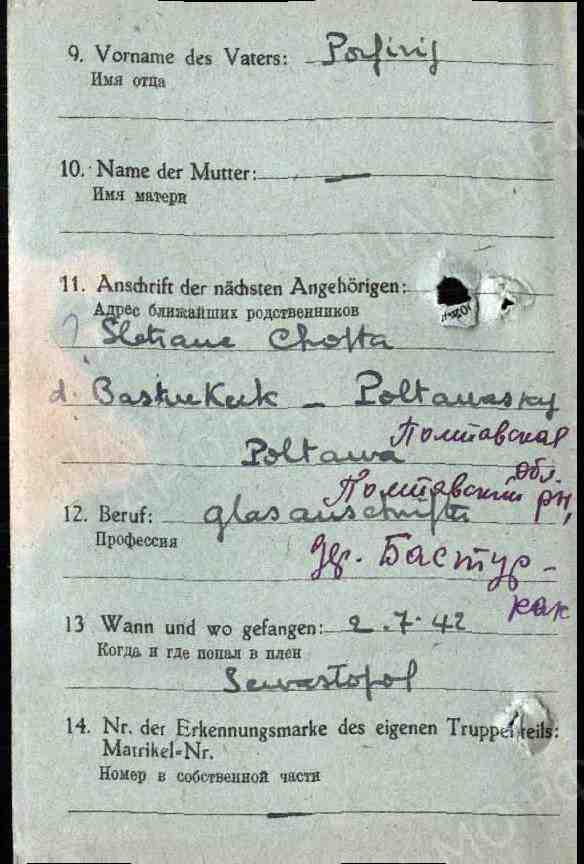 9. Vorname des Vaters: Porfirij
Имя отца
10. Name der Mutter: —
Имя матери
11. Anschrift der nächsten Angehörigen:
Адрес ближайших родственников
Chosta
d. Bastukuk – Poltawasky
Полтавская
Poltawa
обл.
Полтавский рн,
12. Beruf: glasanschrifta
Профессия
др. Бастур-
как
13 Wann und wo gefangen: 2.7.42
Когда и где попал в плен
Sewastopol
14. Nr. der Erkennungsmarke des eigenen Truppenteils:
Matrikel-Nr.
Номер в собственной части
—